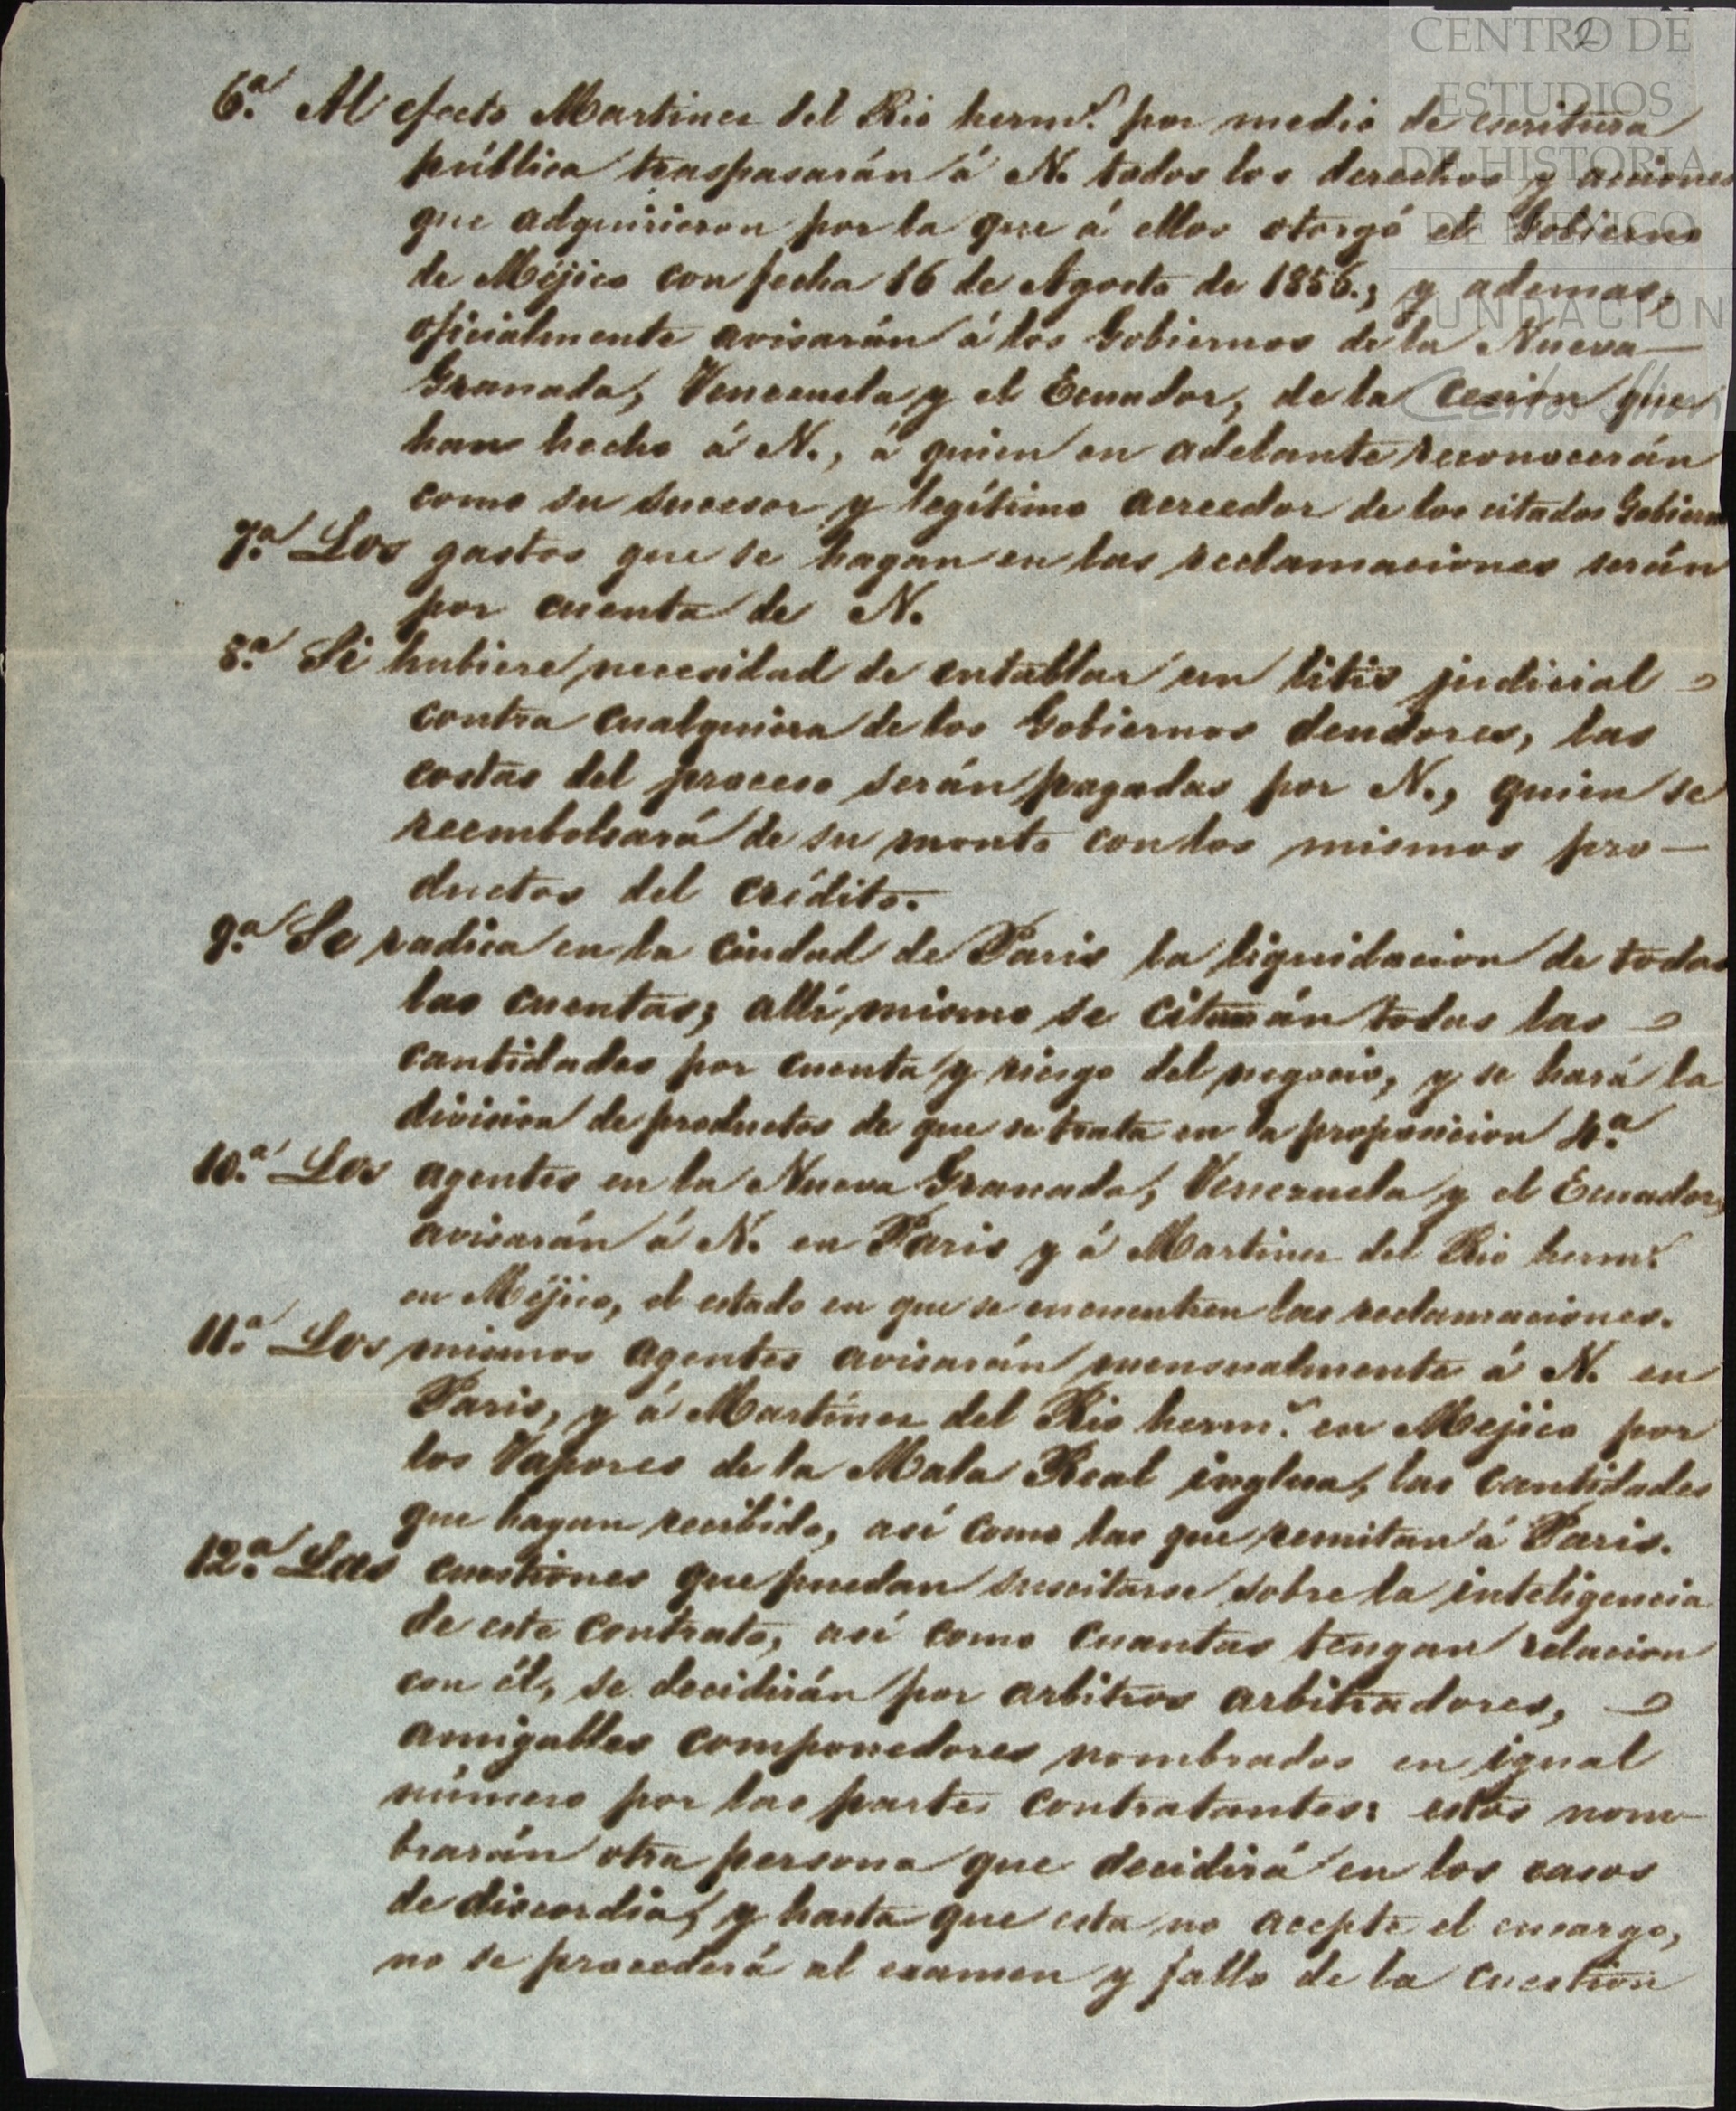 2
CENTRO DE
ESTUDIOS
DE HISTORIA
DE MEXICO
FUNDACIÓN
Carlos Slim
6.ª Al efecto Martinez del Rio herm.s por medio de escritura
pública traspasarán á N. todos los derechos y acciones
que adquirieron por la que á ellos otorgó el Gobierno
de Méjico con fecha 16 de Agosto de 1856., y ademas,
oficialmente avisarán á los Gobiernos de la Nueva—
Granada, Venezuela y el Ecuador, de la cesion que
han hecho á N., á quien en adelante reconocerán
como su sucesor y legítimo acreedor de los citados Gobiernos
7.ª Los gastos que se hagan en las reclamaciones serán
por cuenta de N.
8.ª Si hubiere necesidad de entablar un litis judicial
contra cualquiera de los Gobiernos deudores, las
costas del proceso serán pagadas por N., quien se
reembolsará de su monto con los mismos pro—
ductos del crédito.
9.ª Se radica en la ciudad de Paris la liquidacion de todas
las cuentas; allí mismo se citarán todas las
cantidades por cuenta y riesgo del negocio, y se hará la
division de productos de que se trata en la proposicion 4.ª
10.ª Los agentes en la Nueva Granada, Venezuela y el Ecuador,
avisarán á N. en Paris y á Martinez del Rio herm.s
en Méjico, el estado en que se encuentren las reclamaciones.
11.ª Los mismos agentes avisarán mensualmente á N. en
Paris, y á Martínez del Rio herm.s en Mejico por
los Vapores de la Mala Real inglesa, las cantidades
que hayan recibido, así como las que remitan á Paris.
12.ª Las cuestiones que puedan suscitarse sobre la inteligencia
de este contrato, así como cuantas tengan relacion
con él, se decidirán por arbitros arbitradores,
amigables componedores nombrados en igual
número por las partes contratantes: estos nom—
brarán otra persona que decidirá en los casos
de discordia, y hasta que esta no acepte el encargo,
no se procederá al examen y fallo de la cuestion